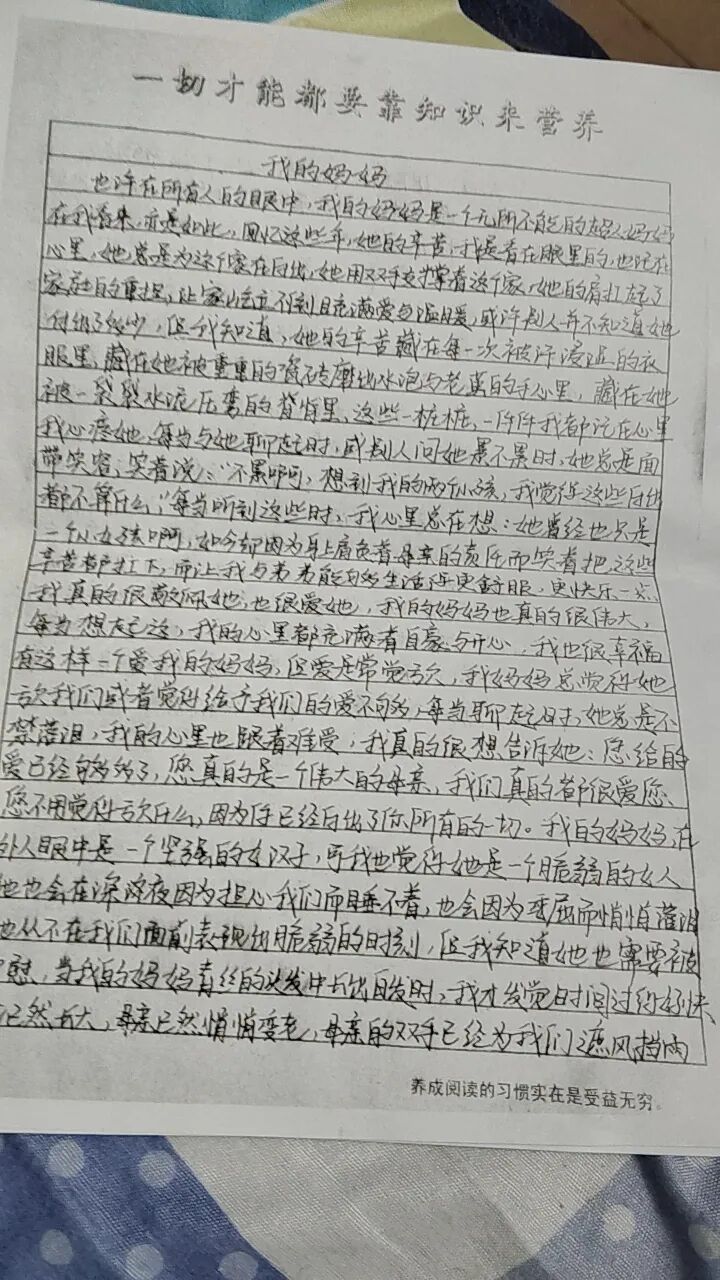 一切才能都要靠知识来营养
我的妈妈
也许在所有人的眼中，我的妈妈是一个无所不能的超人妈妈
在我看来，亦是如此，回忆这些年，她的辛苦，我是看在眼里的，也记在
心里，她总是为这个家在付出，她用双手支撑着这个家，她的肩扛起了
家庭的重担，让家庭立不倒且充满爱与温暖，或许别人并不知道她
付出了多少，但我知道，她的辛苦藏在每一次被汗浸湿的衣
服里，藏在她被重重的瓷砖磨出水泡与老茧的手心里，藏在她
被一袋袋水泥压弯的脊背里，这些一桩桩，一件件我都记在心里
我心疼她，每当与她聊起时，或别人问她累不累时，她总是面
带笑容，笑着说："不累啊，想到我的两个小孩，我觉得这些付出
都不算什么，"每当听到这些时，我心里总在想：她曾经也只是
一个小女孩啊，如今却因为身上肩负着母亲的责任而笑着把这些
辛苦都扛下，而让我与弟弟能够生活得更舒服，更快乐一点
我真的很敬佩她，也很爱她，我的妈妈也真的很伟大，
每当想起这，我的心里都充满着自豪与开心，我也很幸福
有这样一个爱我的妈妈，但爱是常觉亏欠，我妈妈总觉得她
亏欠我们或者觉得给予我们的爱不够多，每当聊起时，她总是不
禁落泪，我的心里也跟着难受，我真的很想告诉她：您给的
爱已经够多了，您真的是一个伟大的母亲，我们真的都很爱您、
您不用觉得亏欠什么，因为你已经付出了你所有的一切。我的妈妈，在
外人眼中是一个坚强的女汉子，可我也觉得她是一个脆弱的女人
她也会在深深夜因为担心我们而睡不着，也会因为委屈而悄悄落泪
也从不在我们面前表现出脆弱的时刻，但我知道她也需要被
慰，当我的妈妈青丝的头发中长出白发时，我才发觉时间过得好快、
已然长大，母亲已然悄悄变老，母亲的双手已经为我们遮风挡雨
养成阅读的习惯实在是受益无穷。